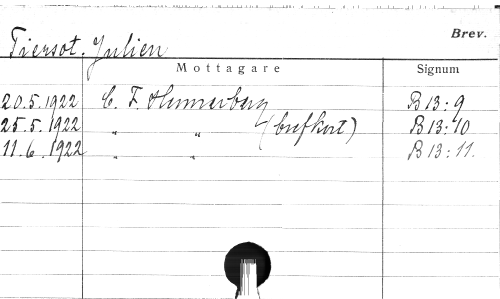 Brev.
Tiersot, Julien
Mottagare Signum
20.5.1922 C. F. Hennerberg B 13:9
25.5.1922 " " (brefkort) B 13:10
11.6.1922 " " B 13:11.